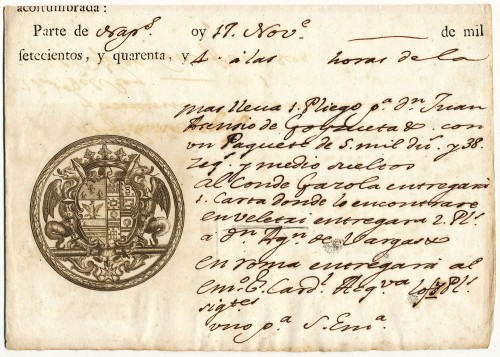 acostumbrada:
Parte de Nap.s oy 17. Nov.e de mil
setecientos, y quarenta, y 4. á las horas de la
mas lleva 1. Pliego p.a d.n Juan
Asensio de Goyzueta &. con
un Paquete de 5. mil du. y 38.
zeq.s y medio sueltos
al Conde Gazola entregará
1. Carta donde lo encontrare
en veletri entregará 2. Pl.s
a d.n Ag.n de Vargas &
en roma entregará al
em.o S. Card.l Aq.va los 3 Pl.s
sig.tes
vno p.a S. Em.a